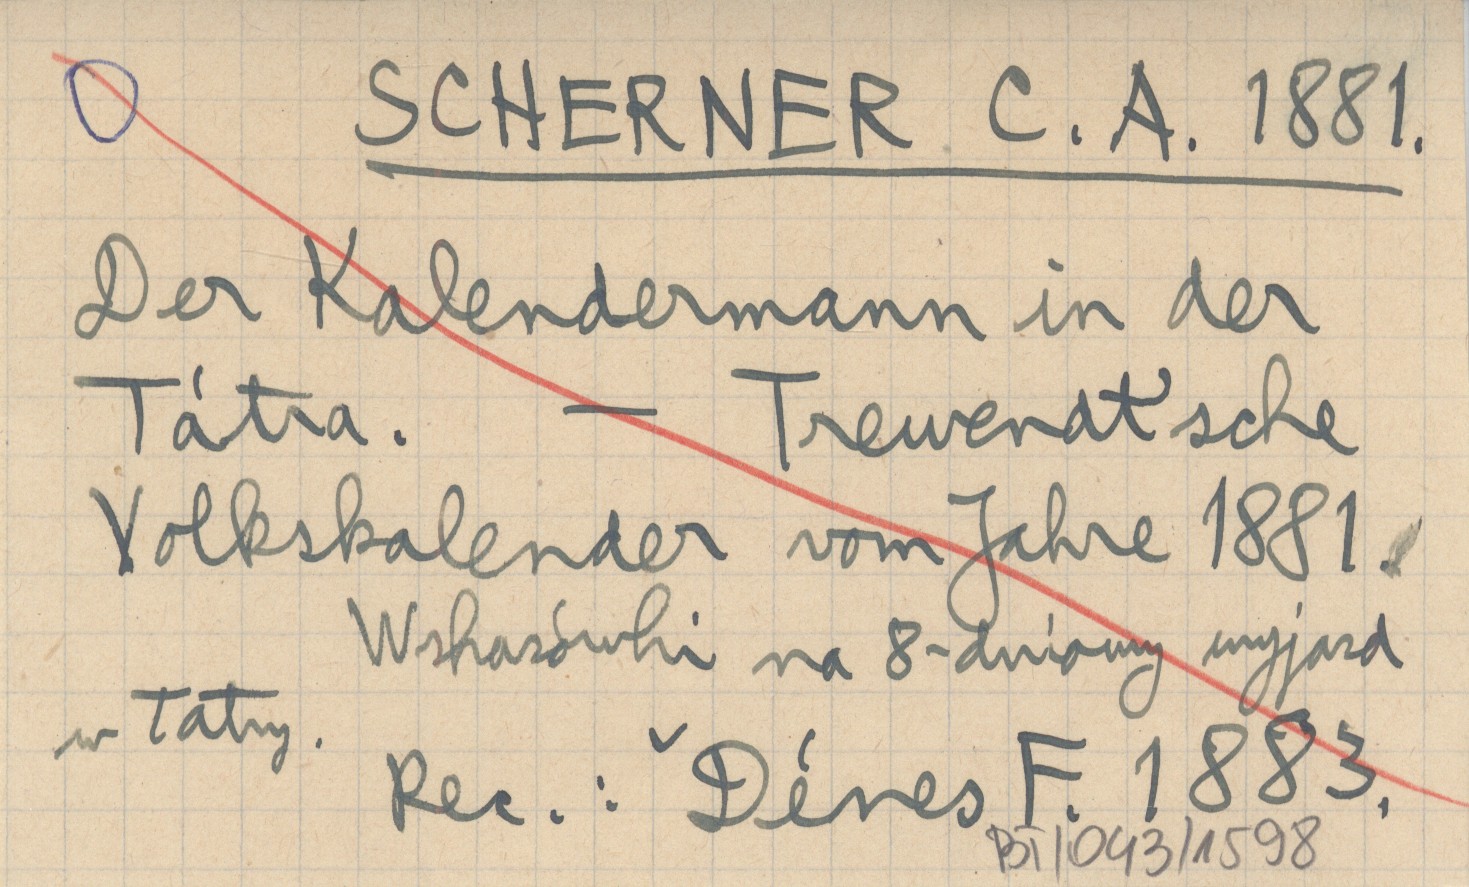 SCHERNER C. A. 1881.
Der Kalendermann in der
Tátra. — Trewendt'sche
Volkskalender vom Jahre 1881.
Wskazówki na 8-dniowy wyjazd
w Tatry.
Rec.: ˇDénes F. 1883.
BT/043/1598